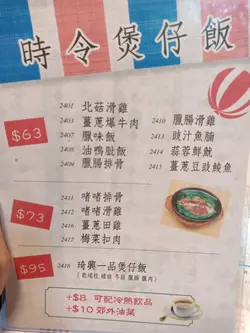 時令煲仔飯
$63
2401 北菇滑雞
2403 薑蔥爆牛肉
2407 臘味飯
2408 油鴨髀飯
2409 臘腸排骨
2410 臘腸滑雞
2413 豉汁魚腩
2414 蒜蓉鮮魷
2415 薑蔥豆豉鯪魚
$73
2411 啫啫排骨
2412 啫啫滑雞
2416 薑蔥田雞
2417 梅菜扣肉
$95
2418 琦興一品煲仔飯
+$8 可配冷熱飲品
+$10 郊外油菜